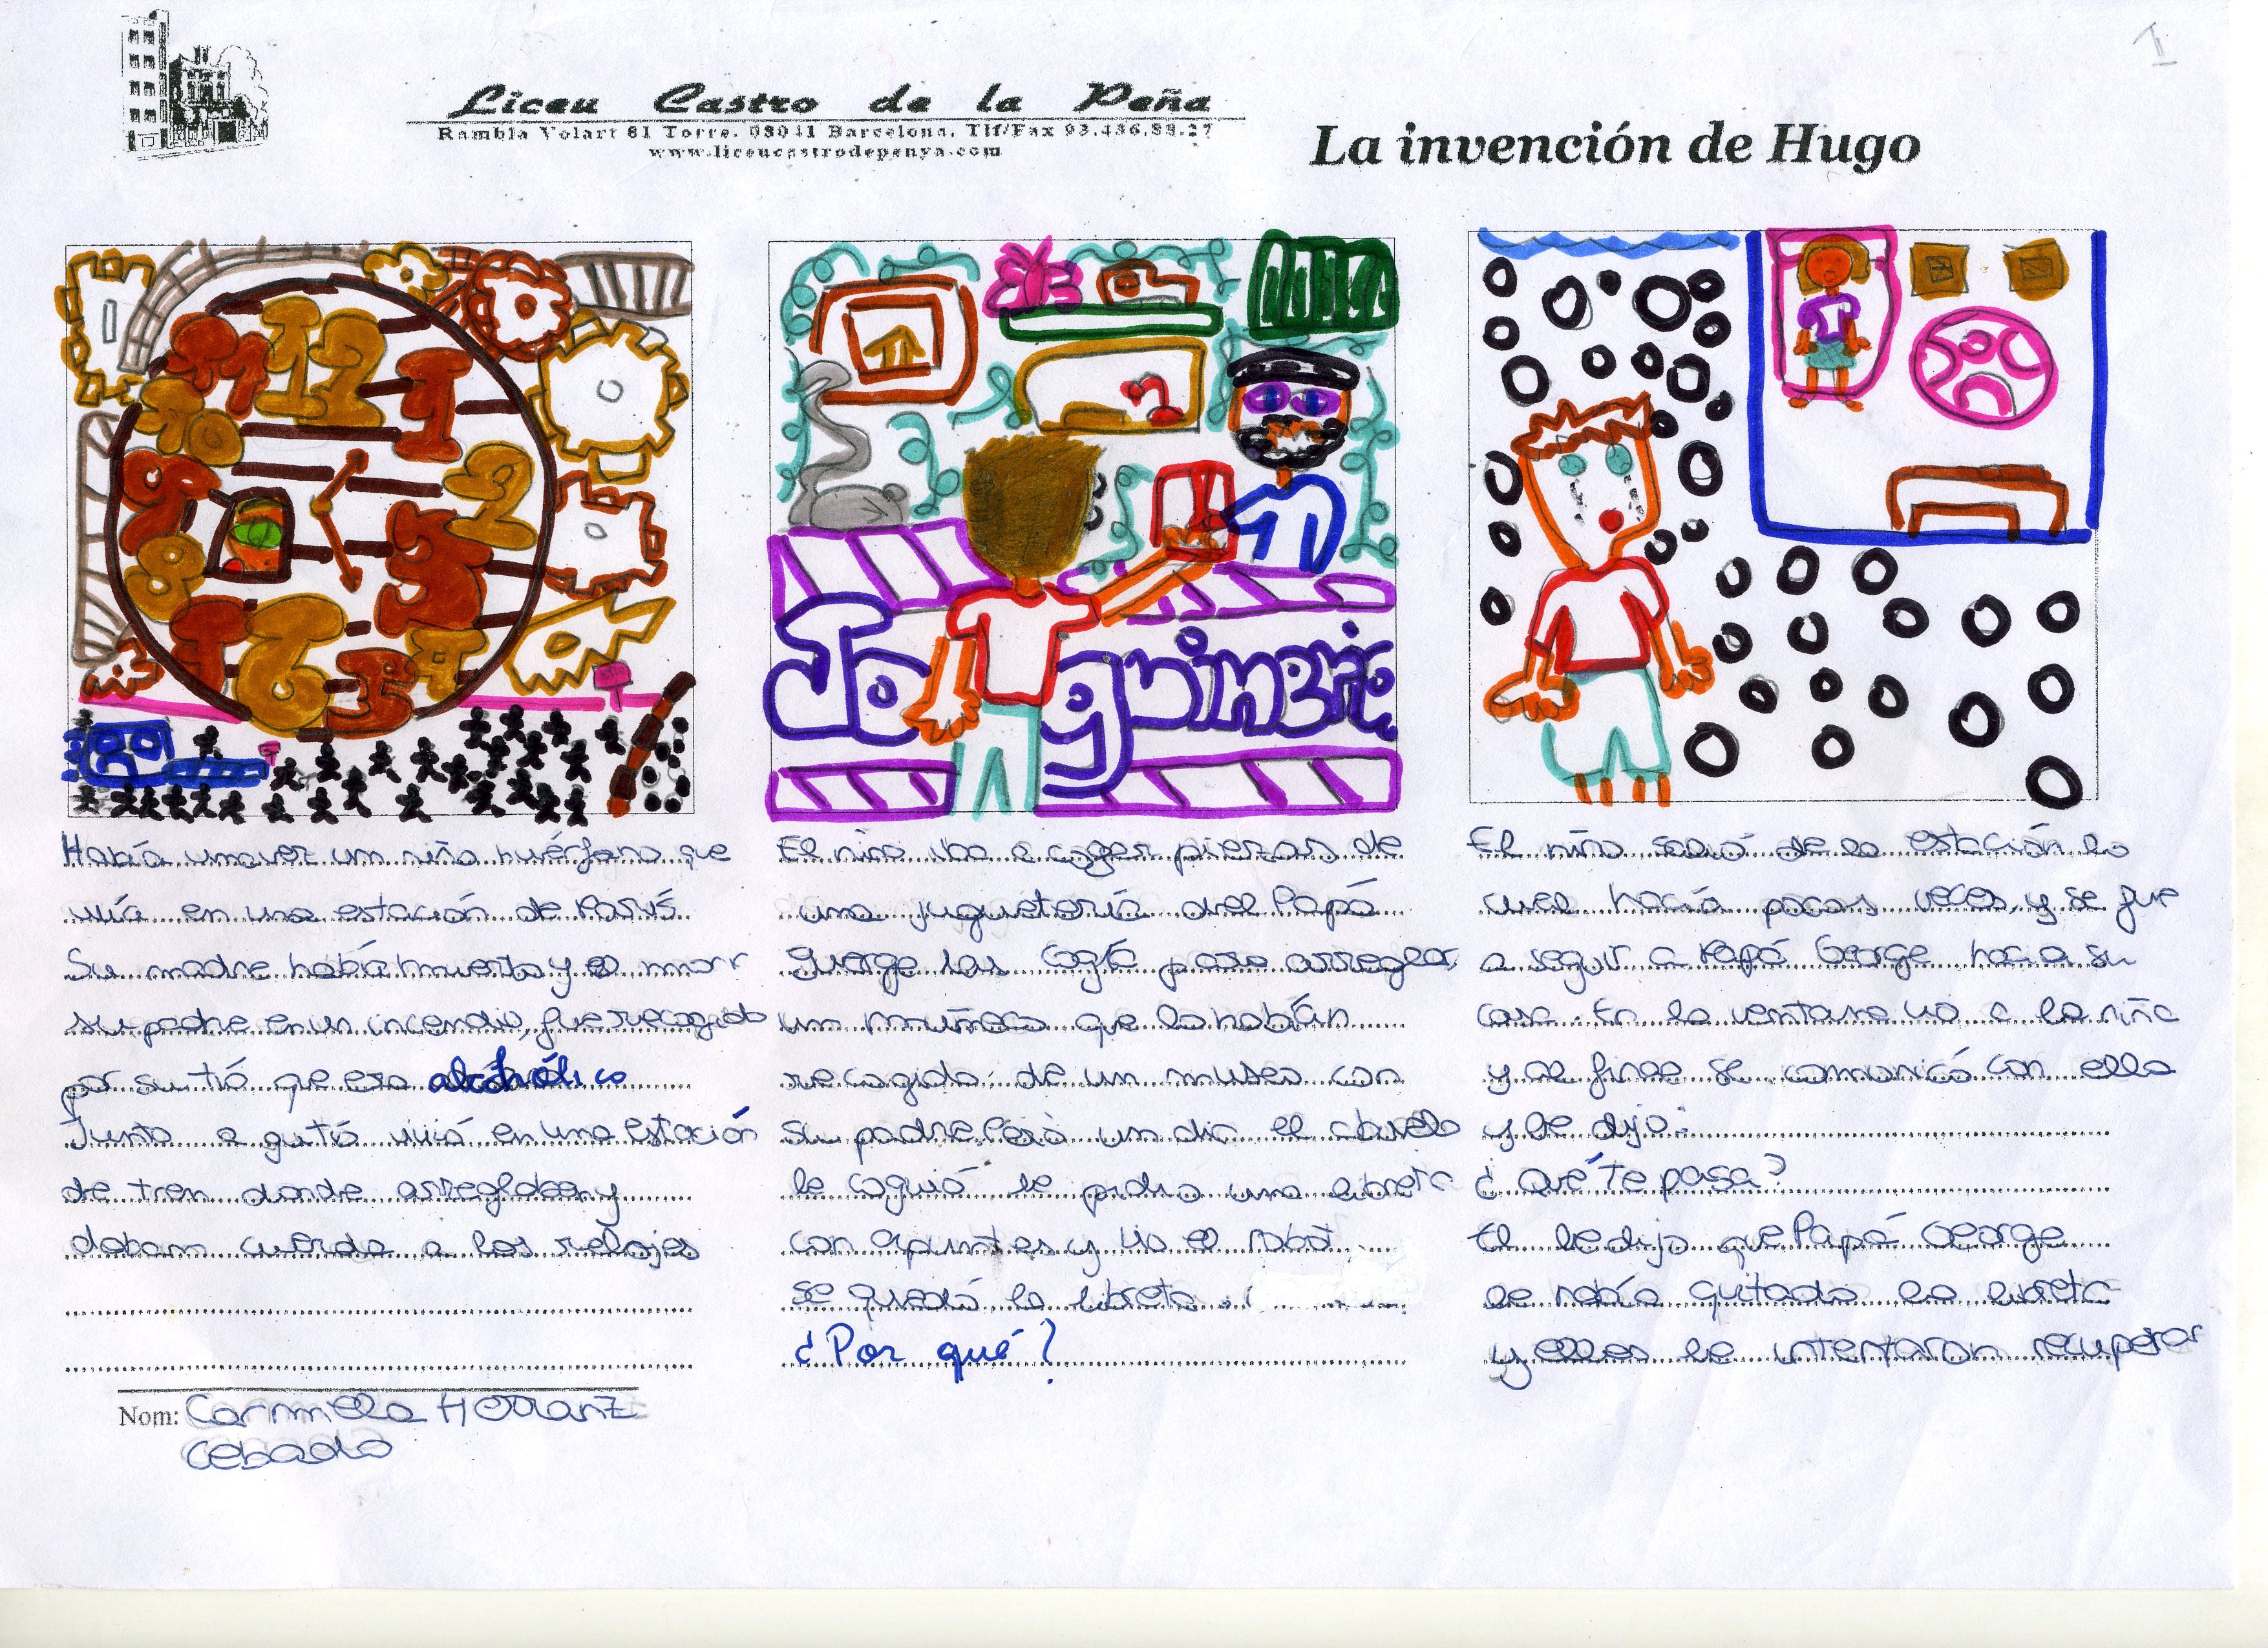 I
Liceu Castro de la Peña
Rambla Volart 81 Torre. 08041 Barcelona. Tlf/Fax 93.436.88.27
www.liceucastrodepenya.com
La invención de Hugo
11 12 1
10 2
9 3
8 4
7 6 5
Joguineria
Había una vez un niño huérfano que
vivía en una estación de París
Su madre había muerto y
su padre en un incendio, fue recogido
por su tió que era alcohólico
Junto a gu tió vivió en una estación
de tren donde arreglaban y
daban cuerda a los relojes
El niño iba a coger piezas de
una juguetería del Papá
Guerge las cogía para arreglar
un muñeco que lo habían
recogido de un museo con
su padre Pero un dia el abuelo
le coguió le pidio una libreta
con apuntes y vio el robot
se quedó la libreta.
¿Por qué?
El niño salió de la estación lo
cual hacía pocas veces, y se fue
a seguir a Papá George hacia su
casa. En la ventana vio a la niña
y al final se comonicó con ella
y le dijo:
¿Qué te pasa?
El le dijo que Papá George
le había quitado la libreta
y elles le intentaron recuperar
Nom: Carmela Herranz
Cebado